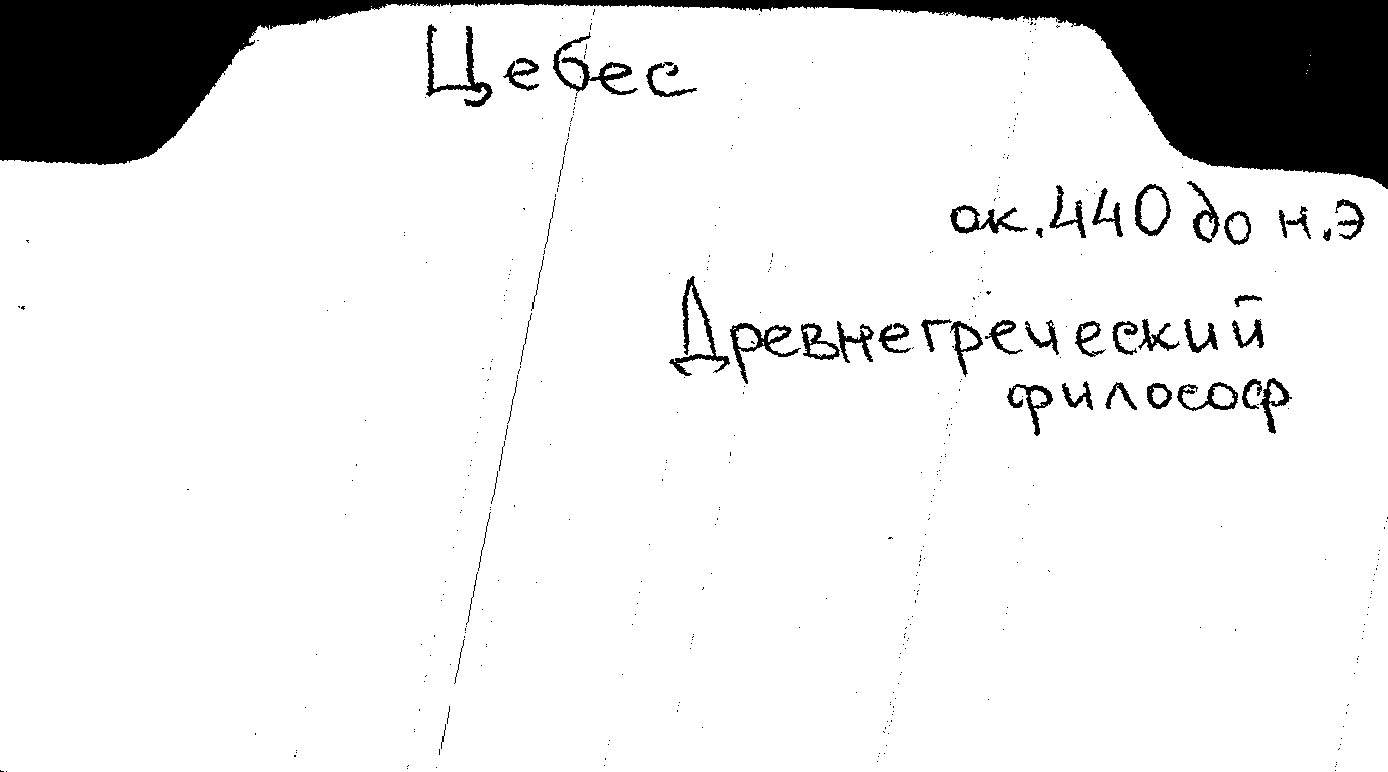 Цебес
ок. 440 до н.э
Древнегреческий
философ